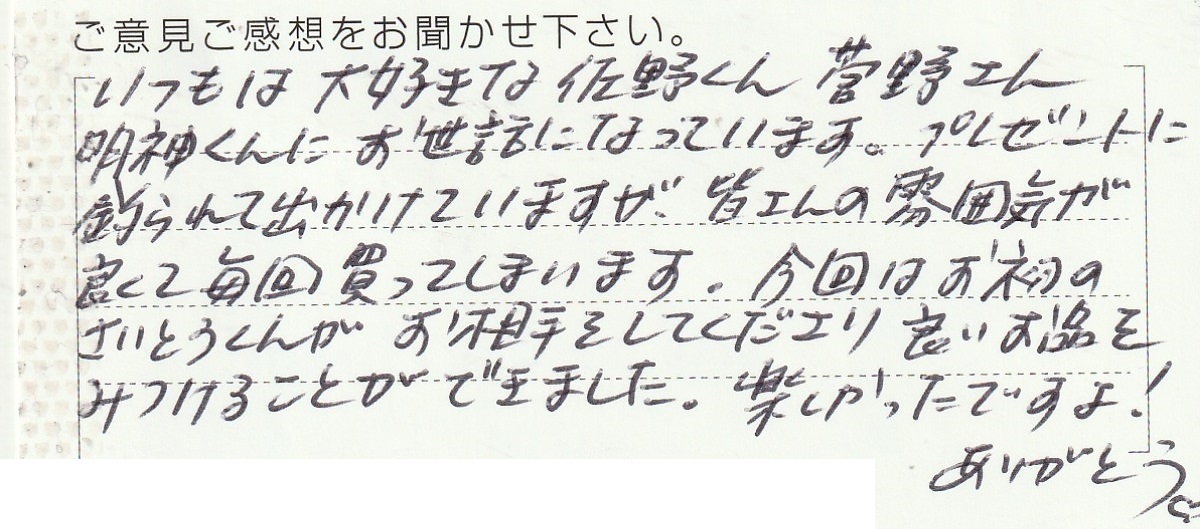 ご意見ご感想をお聞かせ下さい。
いつもは 大好きな 佐野くん 菅野さん
明神くんに お世話になっています。プレゼントに
釣られて出かけていますが、皆さんの雰囲気が
良くて毎回買ってしまいます。今回はお初の
さいとうくんが お相手をしてくださり 良いお品を
みつけることができました。楽しかったですよ!
ありがとう